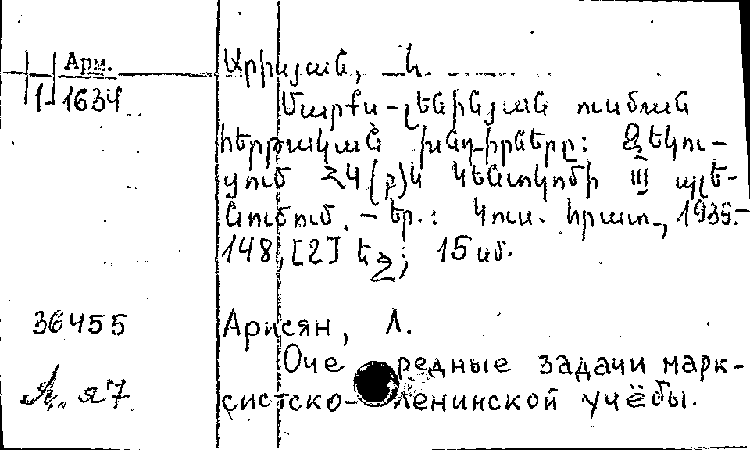 Арм.
1-1634
Արիսյան, Լ.
Մարքս-լենինյան ուսման
հերթական խնդիրները: Զեկու-
ցում ՀԿ(բ)Կ Կենտկոմի III պլե-
նումում. – Եր.: Կուս. հրատ., 1935.–
148, [2] էջ; 15 սմ.
36455
Арисян, Л.
Очередные задачи марк-
систско-ленинской учёбы.